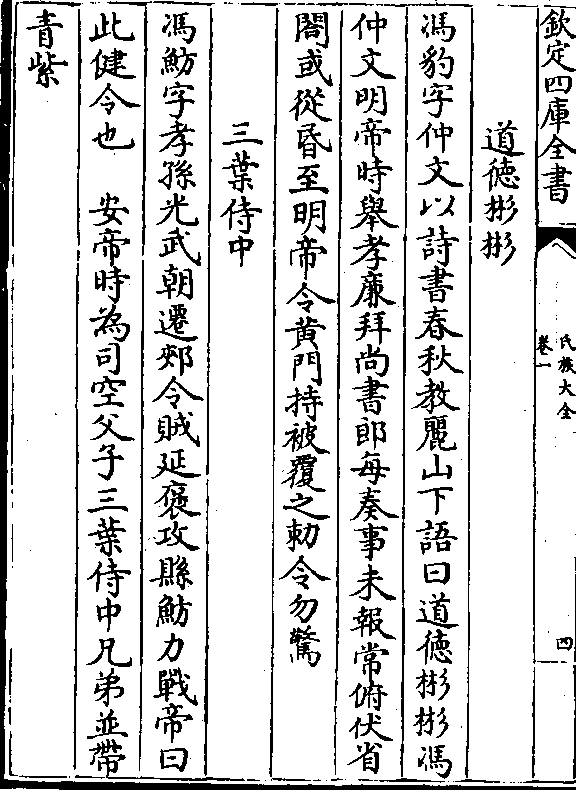 欽定四庫全書
氏族大全
卷一
四
道徳彬彬
馮豹字仲文以詩書春秋教麗山下語曰道徳彬彬馮
仲文明帝時舉孝廉拜尚書郎每奏事未報常俯伏省
閤或從昏至明帝令黄門持被覆之勅令勿驚
三葉侍中
馮魴字孝孫光武朝遷郟令賊延褒攻縣魴力戰帝曰
此健令也　安帝時為司空父子三葉侍中兄弟並帶
青紫